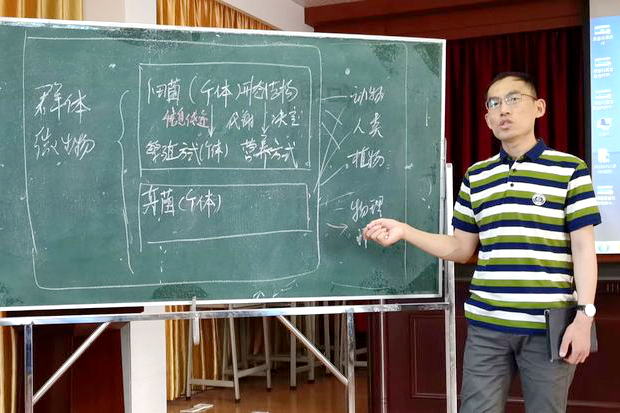 群体
微生物
细菌（个体）形态结构
信息传递 代谢 决定
繁殖方式（个体） 营养方式
真菌（个体）
动物
人类
植物
物理